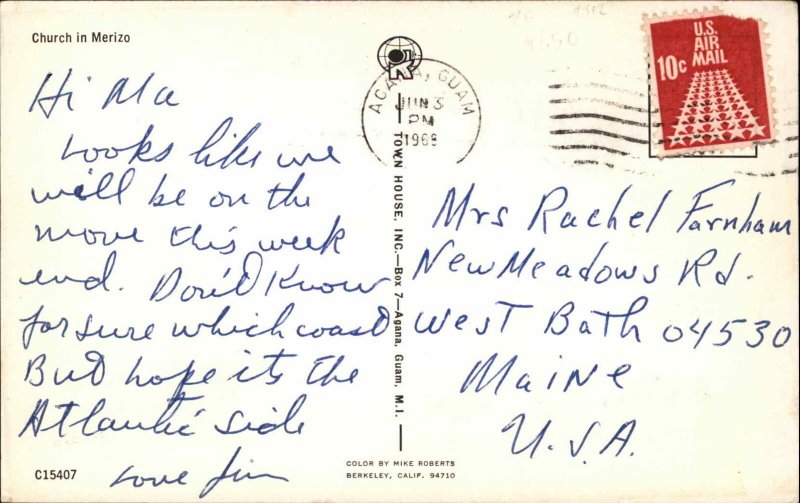 Church in Merizo
Hi Ma
Looks like we
will be on the
move this week
end. Don't Know
for sure which coast
But hope its the
Atlantic side
Love Jim
C15407
AGANA, GUAM
JUN 3
PM
1968
TOWN HOUSE, INC.—Box 7—Agana, Guam, M.I.
U.S.
AIR
MAIL
10c
Mrs Rachel Farnham
New Meadows Rd.
West Bath 04530
Maine
U.S.A.
COLOR BY MIKE ROBERTS
BERKELEY, CALIF. 94710